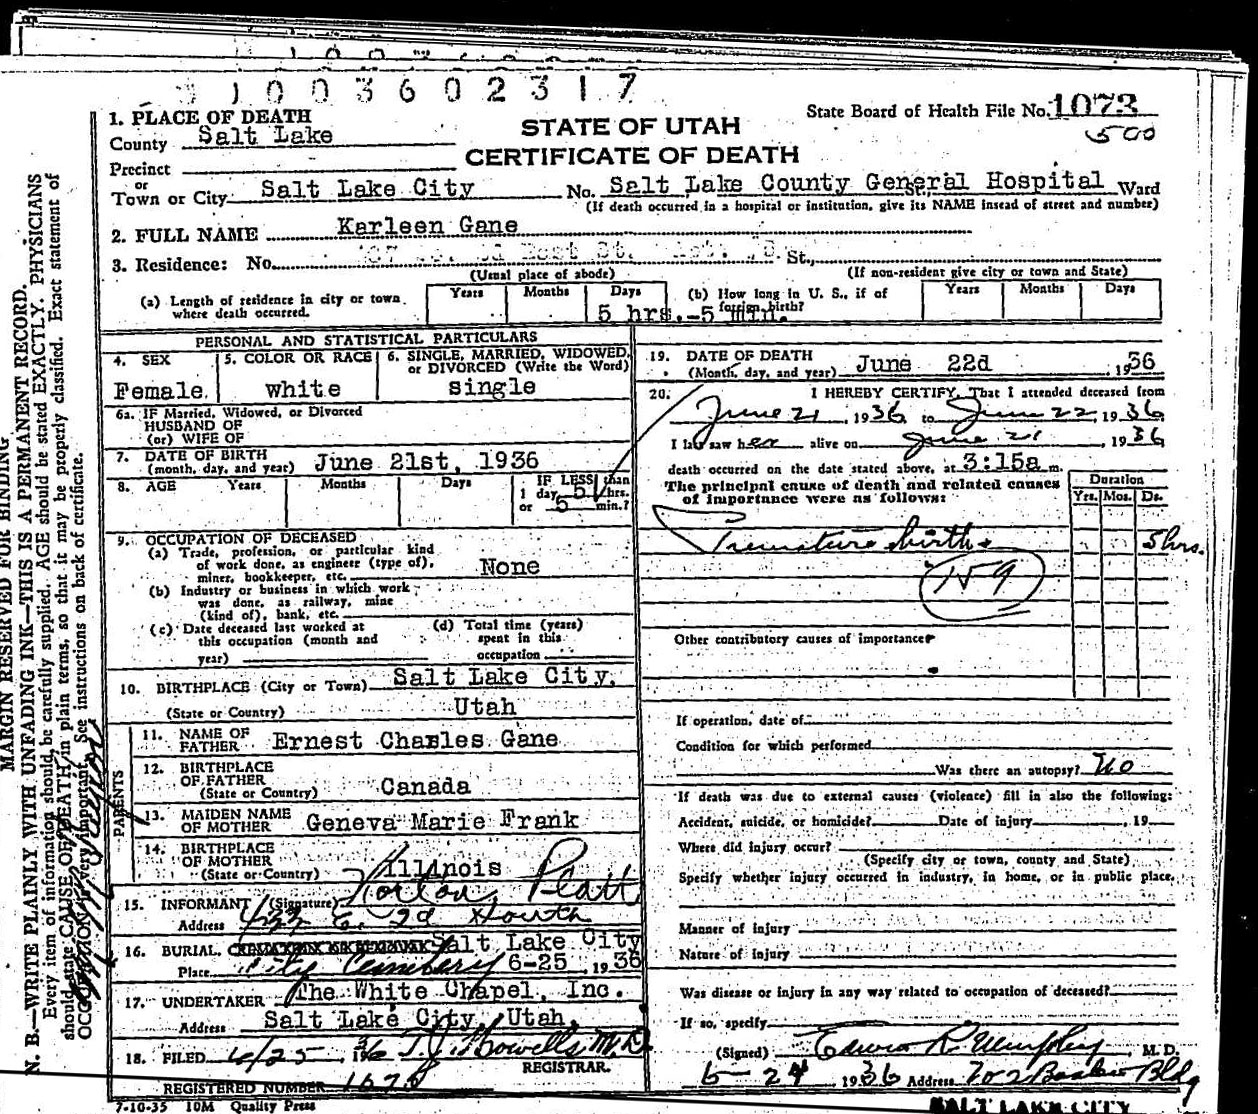 1003602317
State Board of Health File No. 1073
500
STATE OF UTAH
CERTIFICATE OF DEATH
1. PLACE OF DEATH
County Salt Lake
Precinct
or
Town or City Salt Lake City No. Salt Lake County General Hospital St., Ward
(If death occurred in a hospital or institution, give its NAME insead of street and number)
2. FULL NAME Karleen Gane
3. Residence: No. St.,
(Usual place of abode) (If non-resident give city or town and State)
(a) Length of residence in city or town where death occurred. Years Months Days 5 hrs.-5 min.
(b) How long in U. S., if of foreign birth? Years Months Days
PERSONAL AND STATISTICAL PARTICULARS
4. SEX Female
5. COLOR OR RACE white
6. SINGLE, MARRIED, WIDOWED, or DIVORCED (Write the Word) single
6a. IF Married, Widowed, or Divorced
HUSBAND OF
(or) WIFE OF
7. DATE OF BIRTH
(month, day, and year) June 21st, 1936
8. AGE Years Months Days IF LESS than 1 day 5 hrs. or 5 min.?
9. OCCUPATION OF DECEASED
(a) Trade, profession, or particular kind
of work done, as engineer (type of),
miner, bookkeeper, etc. None
(b) Industry or business in which work
was done, as railway, mine
(kind of), bank, etc.
(c) Date deceased last worked at
this occupation (month and
year)
(d) Total time (years)
spent in this
occupation
10. BIRTHPLACE (City or Town) Salt Lake City,
(State or Country) Utah
PARENTS
11. NAME OF FATHER Ernest Charles Gane
12. BIRTHPLACE OF FATHER
(State or Country) Canada
13. MAIDEN NAME OF MOTHER Geneva Marie Frank
14. BIRTHPLACE OF MOTHER
(State or Country) Illinois
15. INFORMANT (Signature) Horton Platt
Address 433 E. 2d South
16. BURIAL, CREMATION OR REMOVAL Salt Lake City
Place City Cemetery 6-25, 1936
17. UNDERTAKER The White Chapel, Inc.
Address Salt Lake City, Utah,
18. FILED 6/25, 1936 T. J. Howells M.D.
REGISTRAR.
REGISTERED NUMBER 1078
7-10-35 10M Quality Press
19. DATE OF DEATH
(Month, day, and year) June 22d, 1936
20. I HEREBY CERTIFY, That I attended deceased from
June 21, 1936 to June 22, 1936
I last saw her alive on June 21, 1936
death occurred on the date stated above, at 3:15a m.
The principal cause of death and related causes
of importance were as follows:
Duration
Yrs. Mos. Ds.
Premature birth 5 hrs.
159
Other contributory causes of importance
If operation, date of
Condition for which performed
Was there an autopsy? No
If death was due to external causes (violence) fill in also the following:
Accident, suicide, or homicide? Date of injury, 19
Where did injury occur?
(Specify city or town, county and State)
Specify whether injury occurred in industry, in home, or in public place.
Manner of injury
Nature of injury
Was disease or injury in any way related to occupation of deceased?
If so, specify
(Signed) Edwin R. Murphy, M. D.
6-24 1936 Address 702 Boston Bldg
SALT LAKE CITY
MARGIN RESERVED FOR BINDING
N. B.—WRITE PLAINLY WITH UNFADING INK—THIS IS A PERMANENT RECORD.
Every item of information should be carefully supplied. AGE should be stated EXACTLY. PHYSICIANS
should state CAUSE OF DEATH in plain terms, so that it may be properly classified. Exact statement of
OCCUPATION is very important. See instructions on back of certificate.